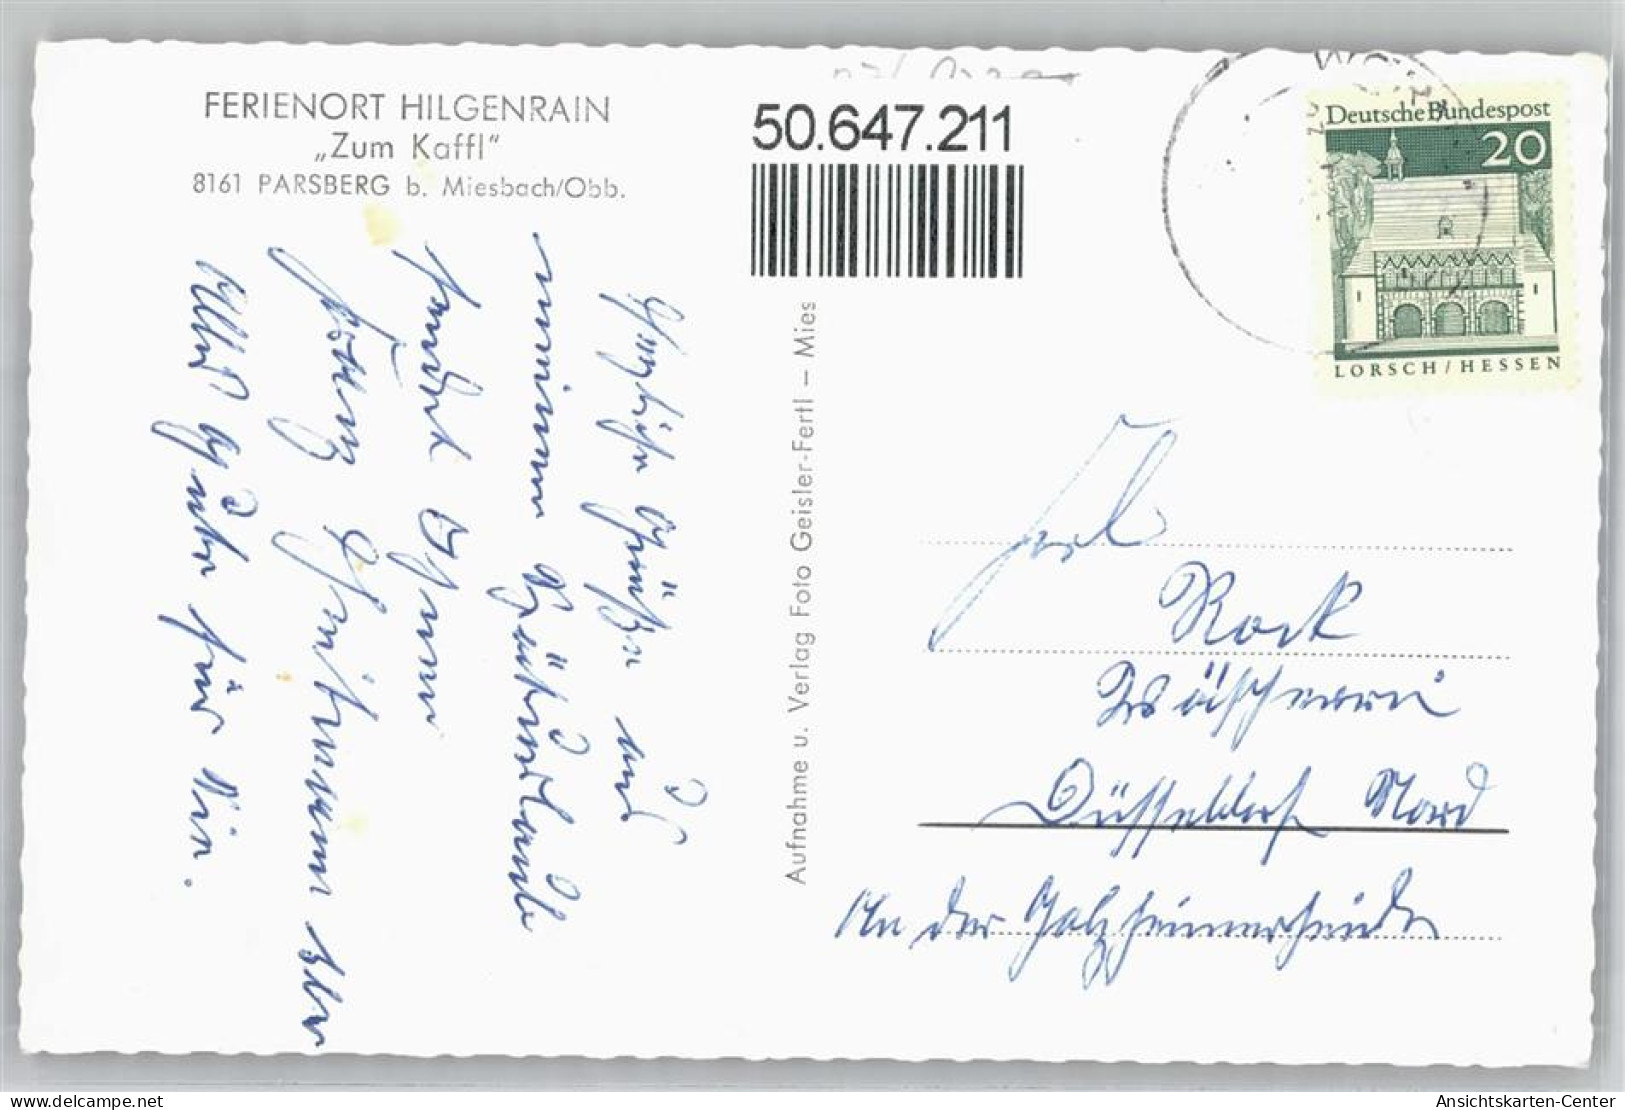 FERIENORT HILGENRAIN
„Zum Kaffl“
8161 PARSBERG b. Miesbach/Obb.
50.647.211
Deutsche Bundespost
20
LORSCH/HESSEN
Aufnahme u. Verlag Foto Geisler-Fertl – Mies
Herzliche Grüße und
meinem
sendet Ihnen
Alles Gute für Sie.
Rock
Wäscherei
Düsseldorf Nord
An der
delcampe.net
Ansichtskarten-Center